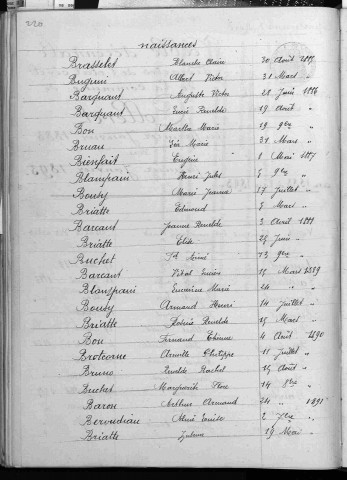 220.
naissances
Brasselet Blanche Claire 30 Août 1885
Albert Victor 31 Mars "
Barquant Auguste Victor 28 Juin 1886
Barquant Lucie Renelde 19 Août "
Bon Martha Marie 19 9bre "
Bruau Léa Marie 31 Mars "
Bienfait Eugène 1 Mai 1887
Blampain Henri Jules 5 9bre "
Bouby Marie Jeanne 17 Juillet "
Briatte Edmond 5 Mars "
Barcant Jeanne Renelde 3 Août 1888
Briatte Elise 25 Juin "
Buchet Aimé 23 9bre "
Barcant Vital Lucien 15 Mars 1889
Blampain Marie 24 " "
Bouby Armand Henri 14 Juillet "
Briatte Renelde 15 Mars "
Bon Fernand Etienne 4 Août 1890
Brotcorne Armelle Philippe 11 Juillet "
Bruno Renelde Rachel 15 Août "
Buchet Marguerite Flore 14 8bre "
Baron Arthur Armand 24 " 1891
Louise 2 7bre "
Briatte Juliene 19 Mai "